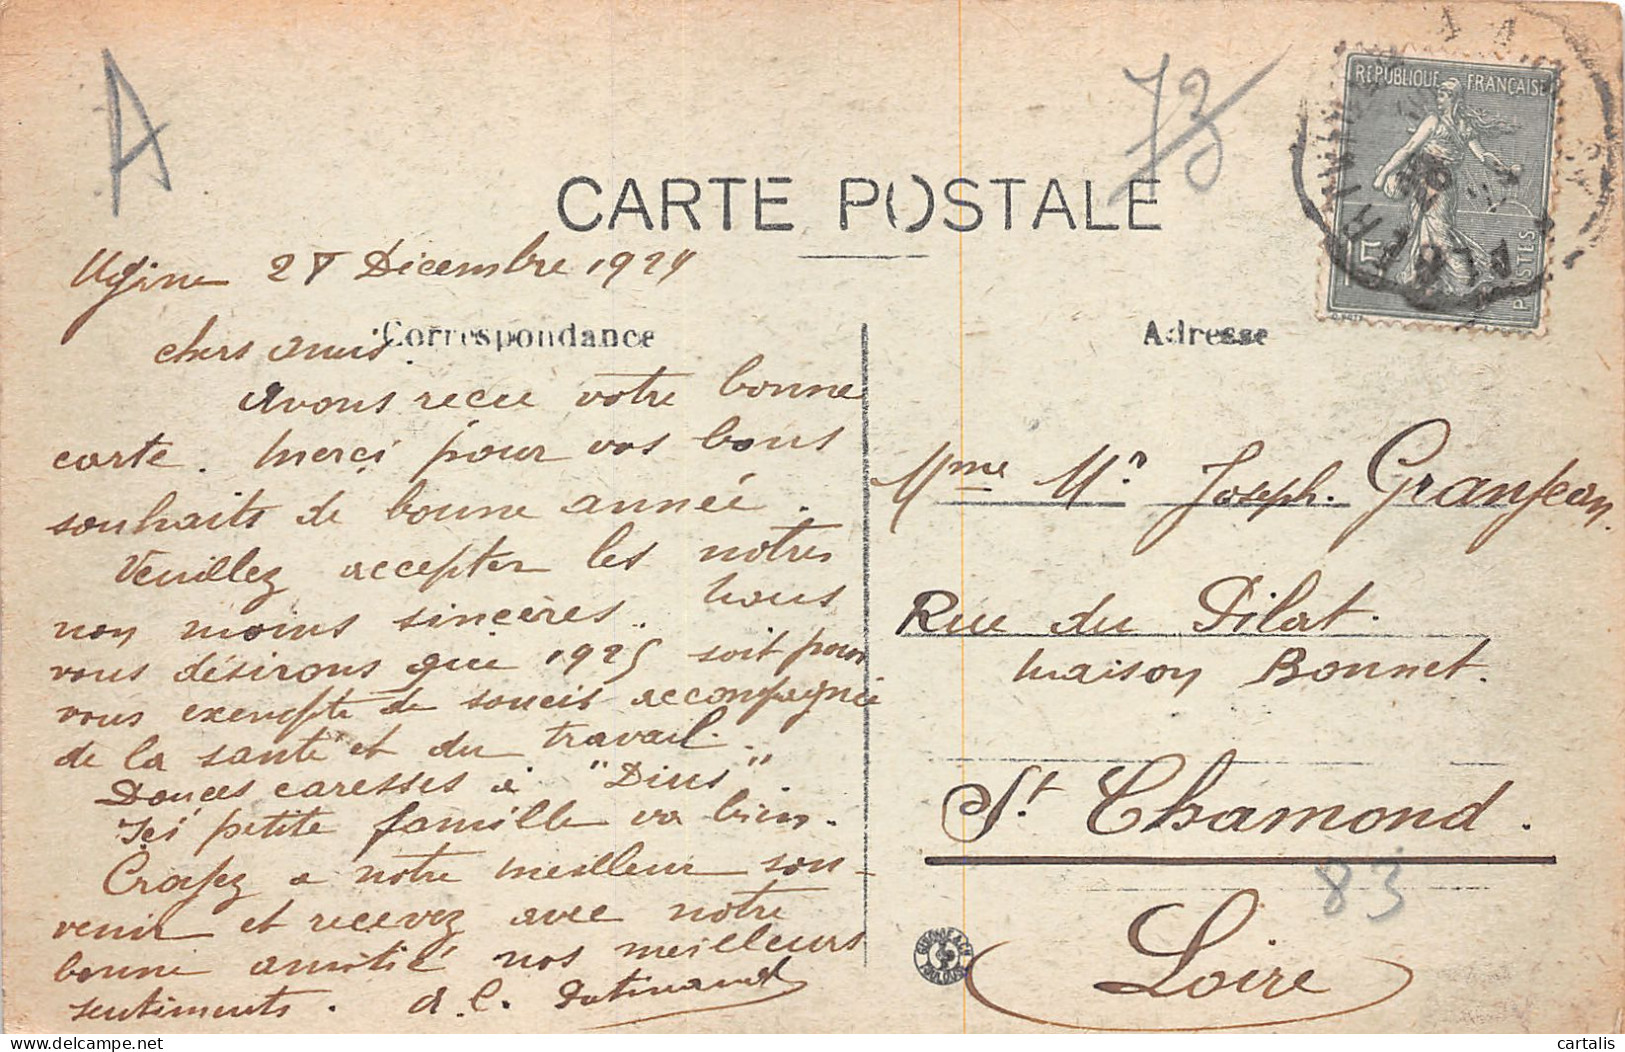 A
73
CARTE POSTALE
RÉPUBLIQUE FRANÇAISE
POSTES
Ugine 28 Décembre 1924
Correspondance
Adresse
chers amis.
Avons reçue votre bonne
carte. Merci pour vos bons
souhaits de bonne année.
Veuillez accepter les notres
non moins sincères. Nous
vous désirons que 1925 soit pour
vous exempte de soucis accompagnée
de la santé et du travail.
Douces caresses à "Dius"
Ici petite famille va bien.
Croyez a notre meilleur sou-
venir et recevez avec notre
bonne amitié nos meilleurs
sentiments. A. C.
Mme Mr Joseph. Granjean.
Rue du Pilat.
Maison Bonnet.
St Chamond.
83
Loire
cartalis